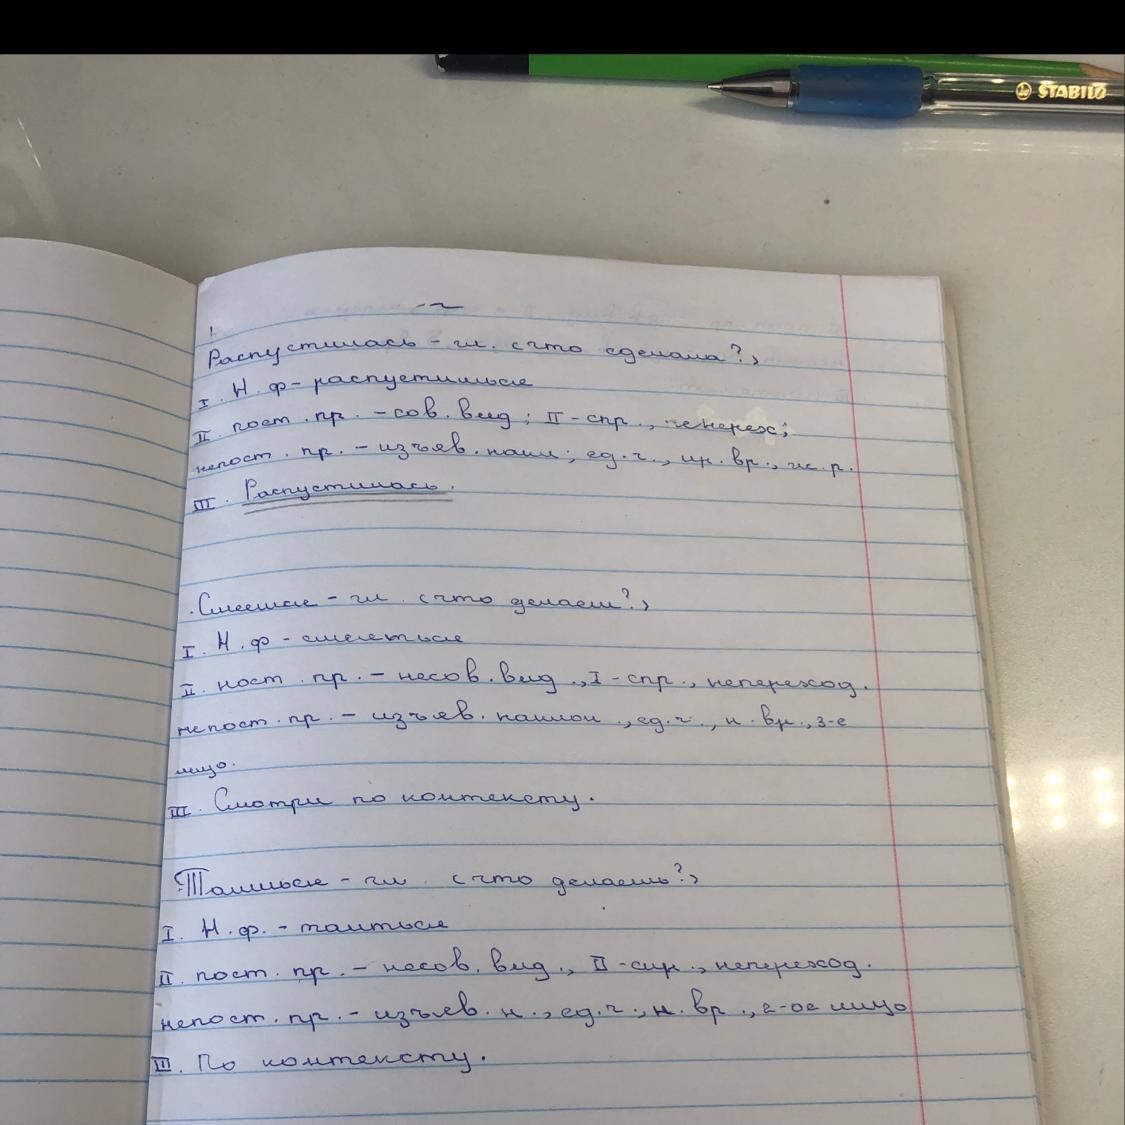 STABILO
Распустилась - гл. (что сделала?)
I. Н.ф - распуститься
II. пост. пр. - сов. вид; II - спр., неперех;
непост. пр. - изъяв. накл; ед.ч., пр. вр., ж. р.
III. Распустилась.
Смеешься - гл. (что делает?)
I. Н.ф - смеяться
II. пост. пр. - несов. вид., I - спр., непереход.
непост. пр. - изъяв. наклон., ед.ч., н. вр., 3-е
лицо.
III. Смотри по контексту.
Таишься - гл. (что делаешь?)
I. Н.ф. - таиться
II. пост. пр. - несов. вид., II - спр., непереход.
непост. пр. - изъяв. н., ед.ч., н. вр., 2-ое лицо
III. По контексту.